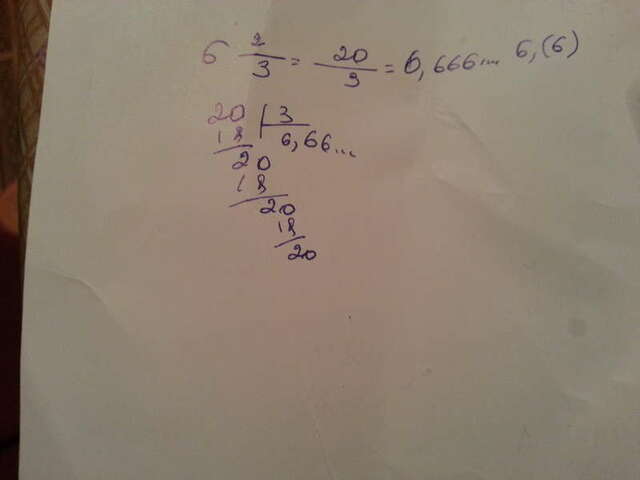 6 2/3 = 20/3 = 6,666... 6,(6)
20 | 3
18 6,66...
20
18
20
18
20